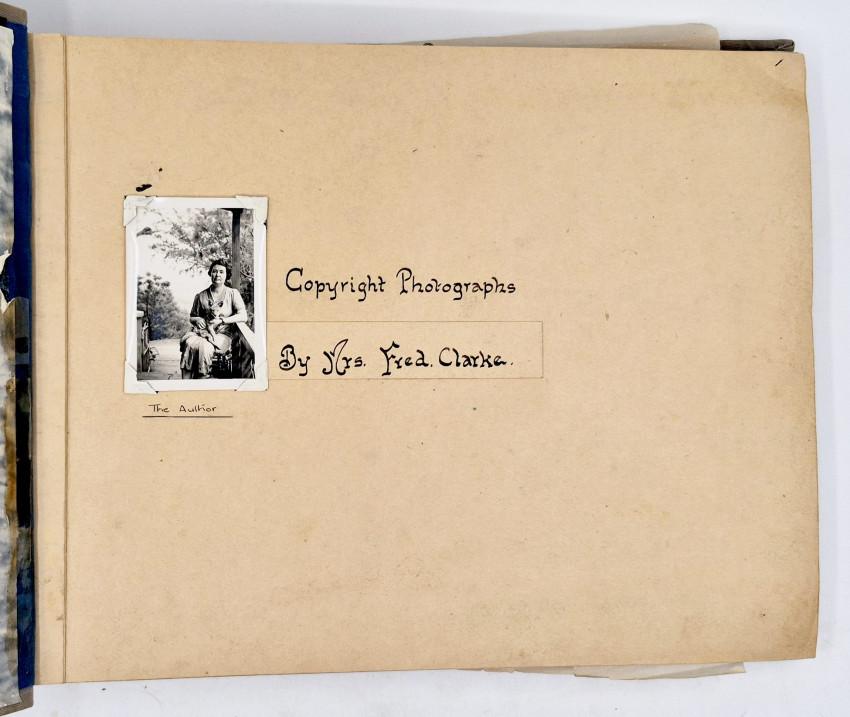 Copyright Photographs
By Mrs. Fred. Clarke.
The Author